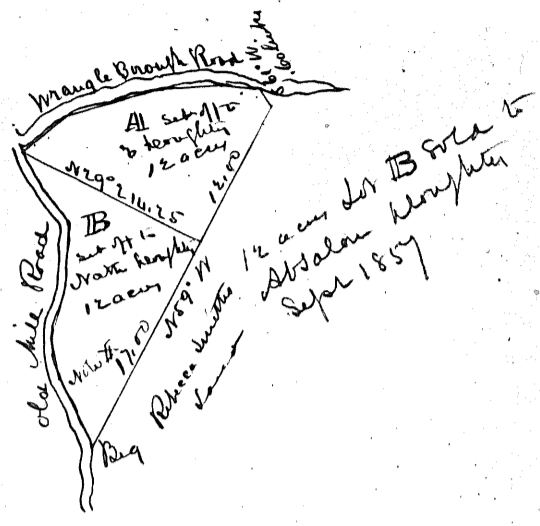 Wrangle Borough Road
S 61° W
60 links
A set off to
Doughty
12 acres
12.00
N 29° E 14.25
B
set off to
Nath Doughty
12 acres
N 59° W
17.00
Old Mill Road
Beg
Rebecca Smiths
Land
12 acres Lot B Sold to
Absalom Doughty
Sept 1857